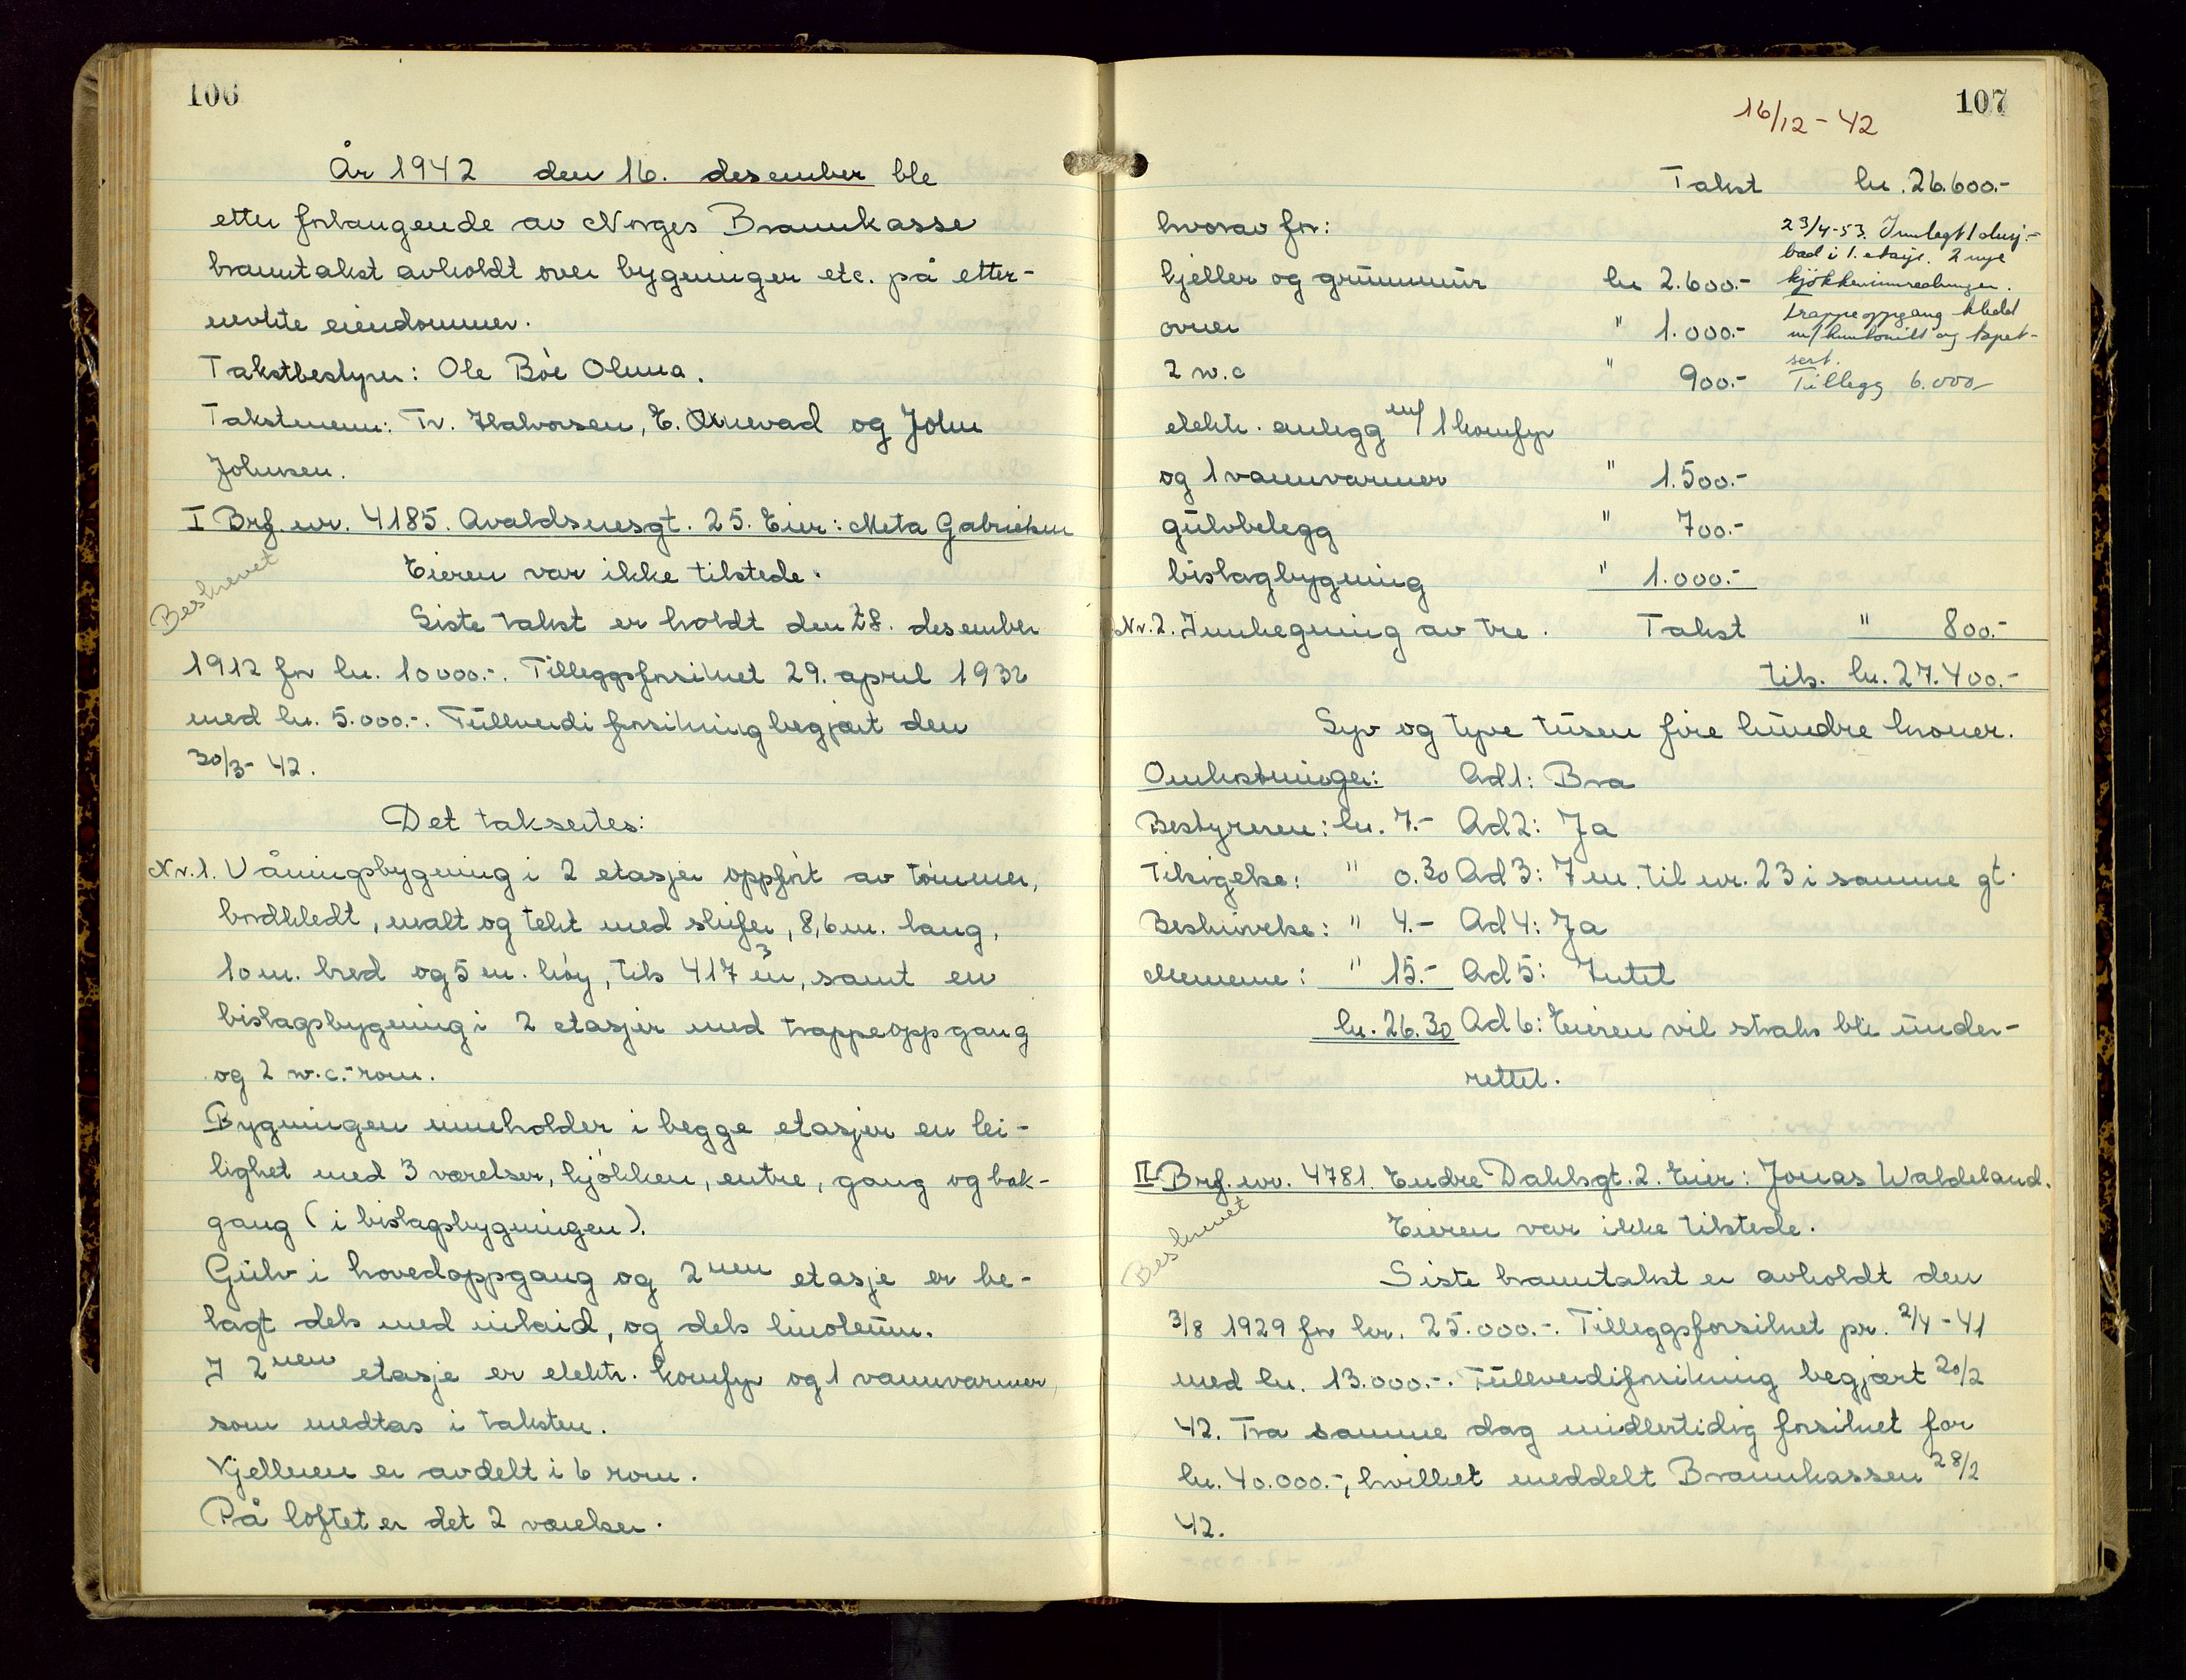 106
År 1942 den 16. desember ble
etter forlangende av Norges Brannkasse
branntakst avholdt over bygninger etc. på etter-
nevnte eiendommer.
Takstbestyrer: Ole Bøe Olsen.
Takstmenn: Tr. Halvorsen, E. og John
Johnsen.
I Brf. nr. 4185. Avaldsnesgt. 25. Eier: Meta Gabrielsen
Beskrevet
Eieren var ikke tilstede.
Siste takst er holdt den 28. desember
1912 for kr. 10000.-. Tilleggsforsikret 29. april 1932
med kr. 5.000.-. Fullverdiforsikring begjært den
30/3- 42.
Det takseres:
Nr. 1. Våningsbygning i 2 etasjer oppført av tømmer,
bordkledt, malt og tekt med skifer, 8,6 m. lang,
10 m. bred og 5 m. høy, tils 417 m³, samt en
bislagsbygning i 2 etasjer med trappeoppgang
og 2 w.c.-rom.
Bygningen inneholder i begge etasjer en lei-
lighet med 3 værelser, kjøkken, entre, gang og bak-
gang (i bislagsbygningen).
Gulv i hovedoppgang og 2nen etasje er be-
lagt dels med inlaid, og dels linoleum.
I 2nen etasje er elektr. komfyr og 1 vannvarmer,
som medtas i taksten.
Kjelleren er avdelt i 6 rom.
På loftet er det 2 værelser.
107
16/12 - 42
Takst kr. 26.600.-
hvorav for:
kjeller og grunnmur kr 2.600.-
ovner " 1.000.-
2 w.c " 900.-
elektr. anlegg m/ 1 komfyr
og 1 vannvarmer " 1.500.-
gulvbelegg " 700.-
bislagbygning " 1.000.-
23/4-53. Innlagt 1 dusj-
bad i 1. etasje. 2 nye
kjøkkeninnredninger.
trappeoppgang kledd
m/ huntonitt og tapet-
sert.
Tillegg 6.000-
Nr. 2. Innhegning av tre. Takst " 800.-
tils. kr. 27.400.-
Syv og tyve tusen fire hundre kroner.
Omkostninger: Ad 1: Bra
Bestyreren: kr. 7.- Ad 2: Ja
Tilsigelse: " 0.30 Ad 3: 7 m. til nr. 23 i samme gt.
Beskrivelse: " 4.- Ad 4: Ja
Mennene: " 15.- Ad 5: Intet
kr. 26.30 Ad 6: Eieren vil straks bli under-
rettet.
II Brf. nr. 4781. Endre Dahlsgt. 2. Eier: Jonas Waldeland.
Beskrevet
Eieren var ikke tilstede.
Siste branntakst er avholdt den
3/8 1929 for kr. 25.000.-. Tilleggsforsikret pr. 2/4 - 41
med kr. 13.000.-. Fullverdiforsikring begjært 20/2
42. Fra samme dag midlertidig forsikret for
kr. 40.000.-, hvilket meddelt Brannkassen 28/2
42.